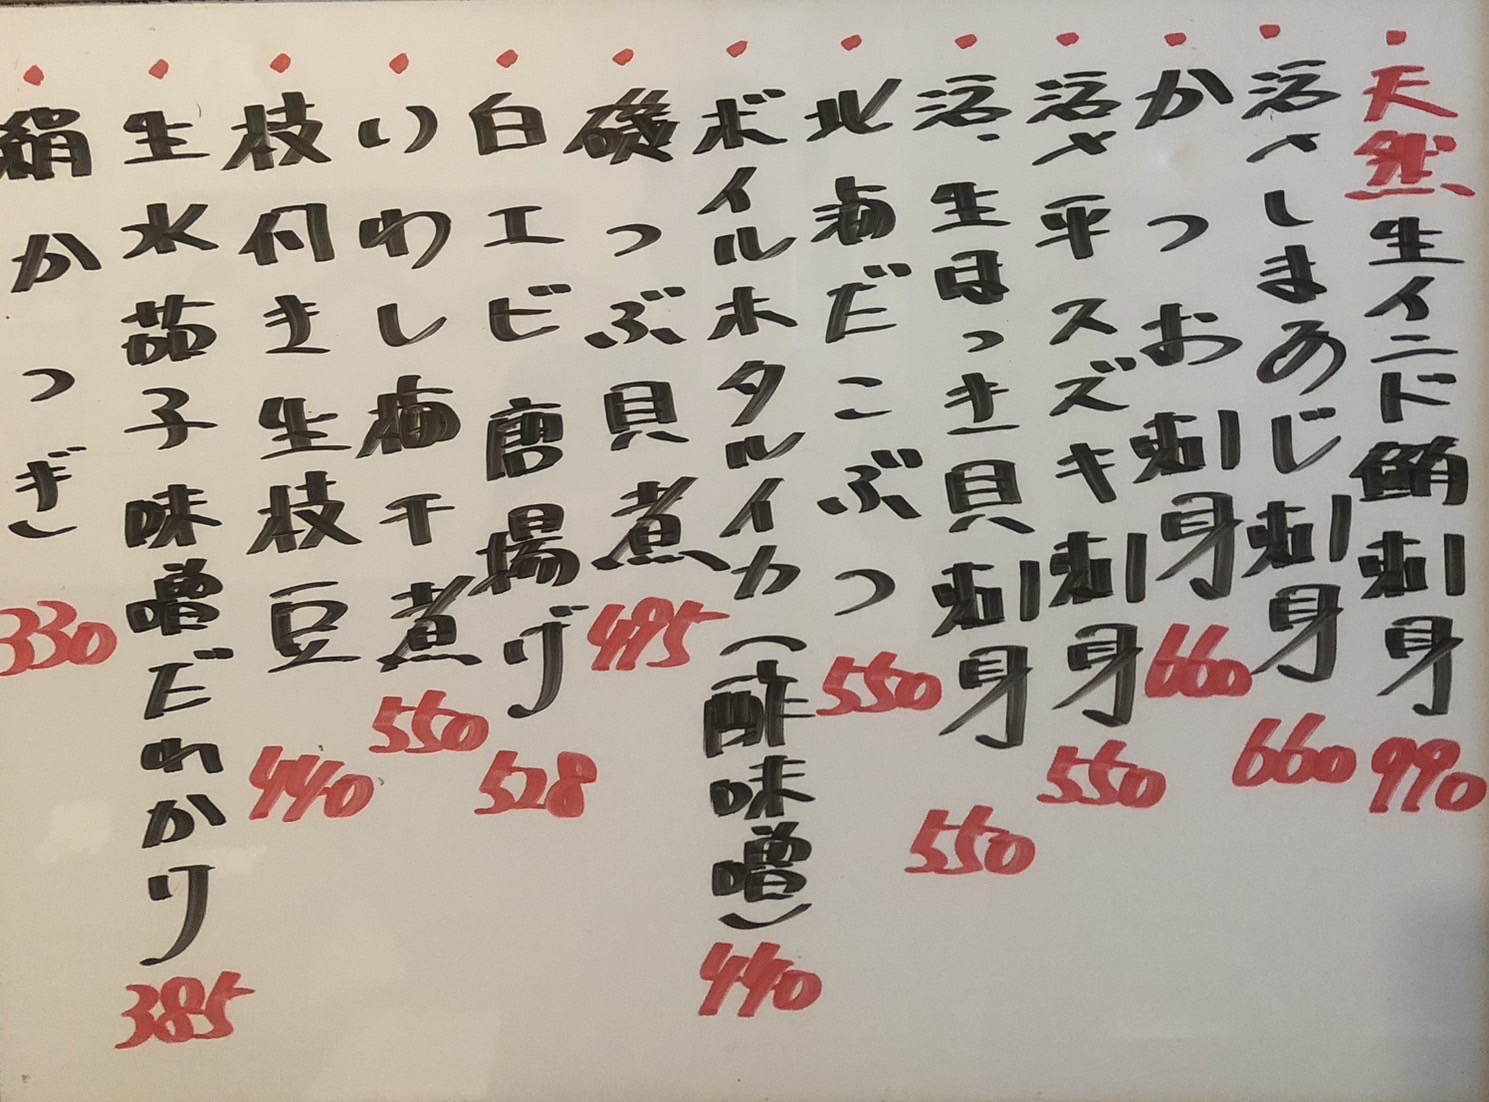 天然生インド鮪刺身 990
活〆しまあじ刺身 660
かつお刺身 660
活〆平スズキ刺身 550
活〆生ほっき貝刺身 550
北海だこぶつ 550
ボイルホタルイカ(酢味噌) 440
磯つぶ貝煮 495
白エビ唐揚げ 528
いわし梅干煮 550
枝付き生枝豆 440
生水茄子味噌だれかり 385
絹かつぎ 330